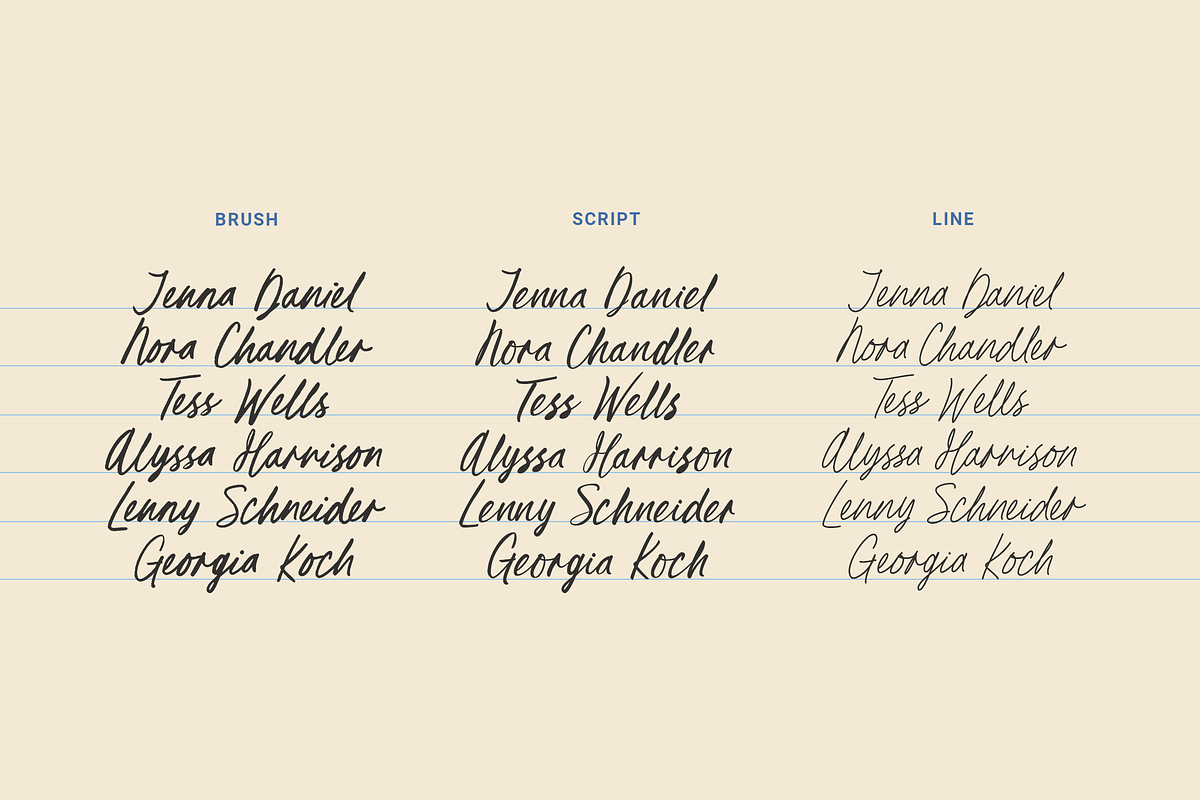 BRUSH SCRIPT LINE
Jenna Daniel Jenna Daniel Jenna Daniel
Nora Chandler Nora Chandler Nora Chandler
Tess Wells Tess Wells Tess Wells
Alyssa Harrison Alyssa Harrison Alyssa Harrison
Lenny Schneider Lenny Schneider Lenny Schneider
Georgia Koch Georgia Koch Georgia Koch